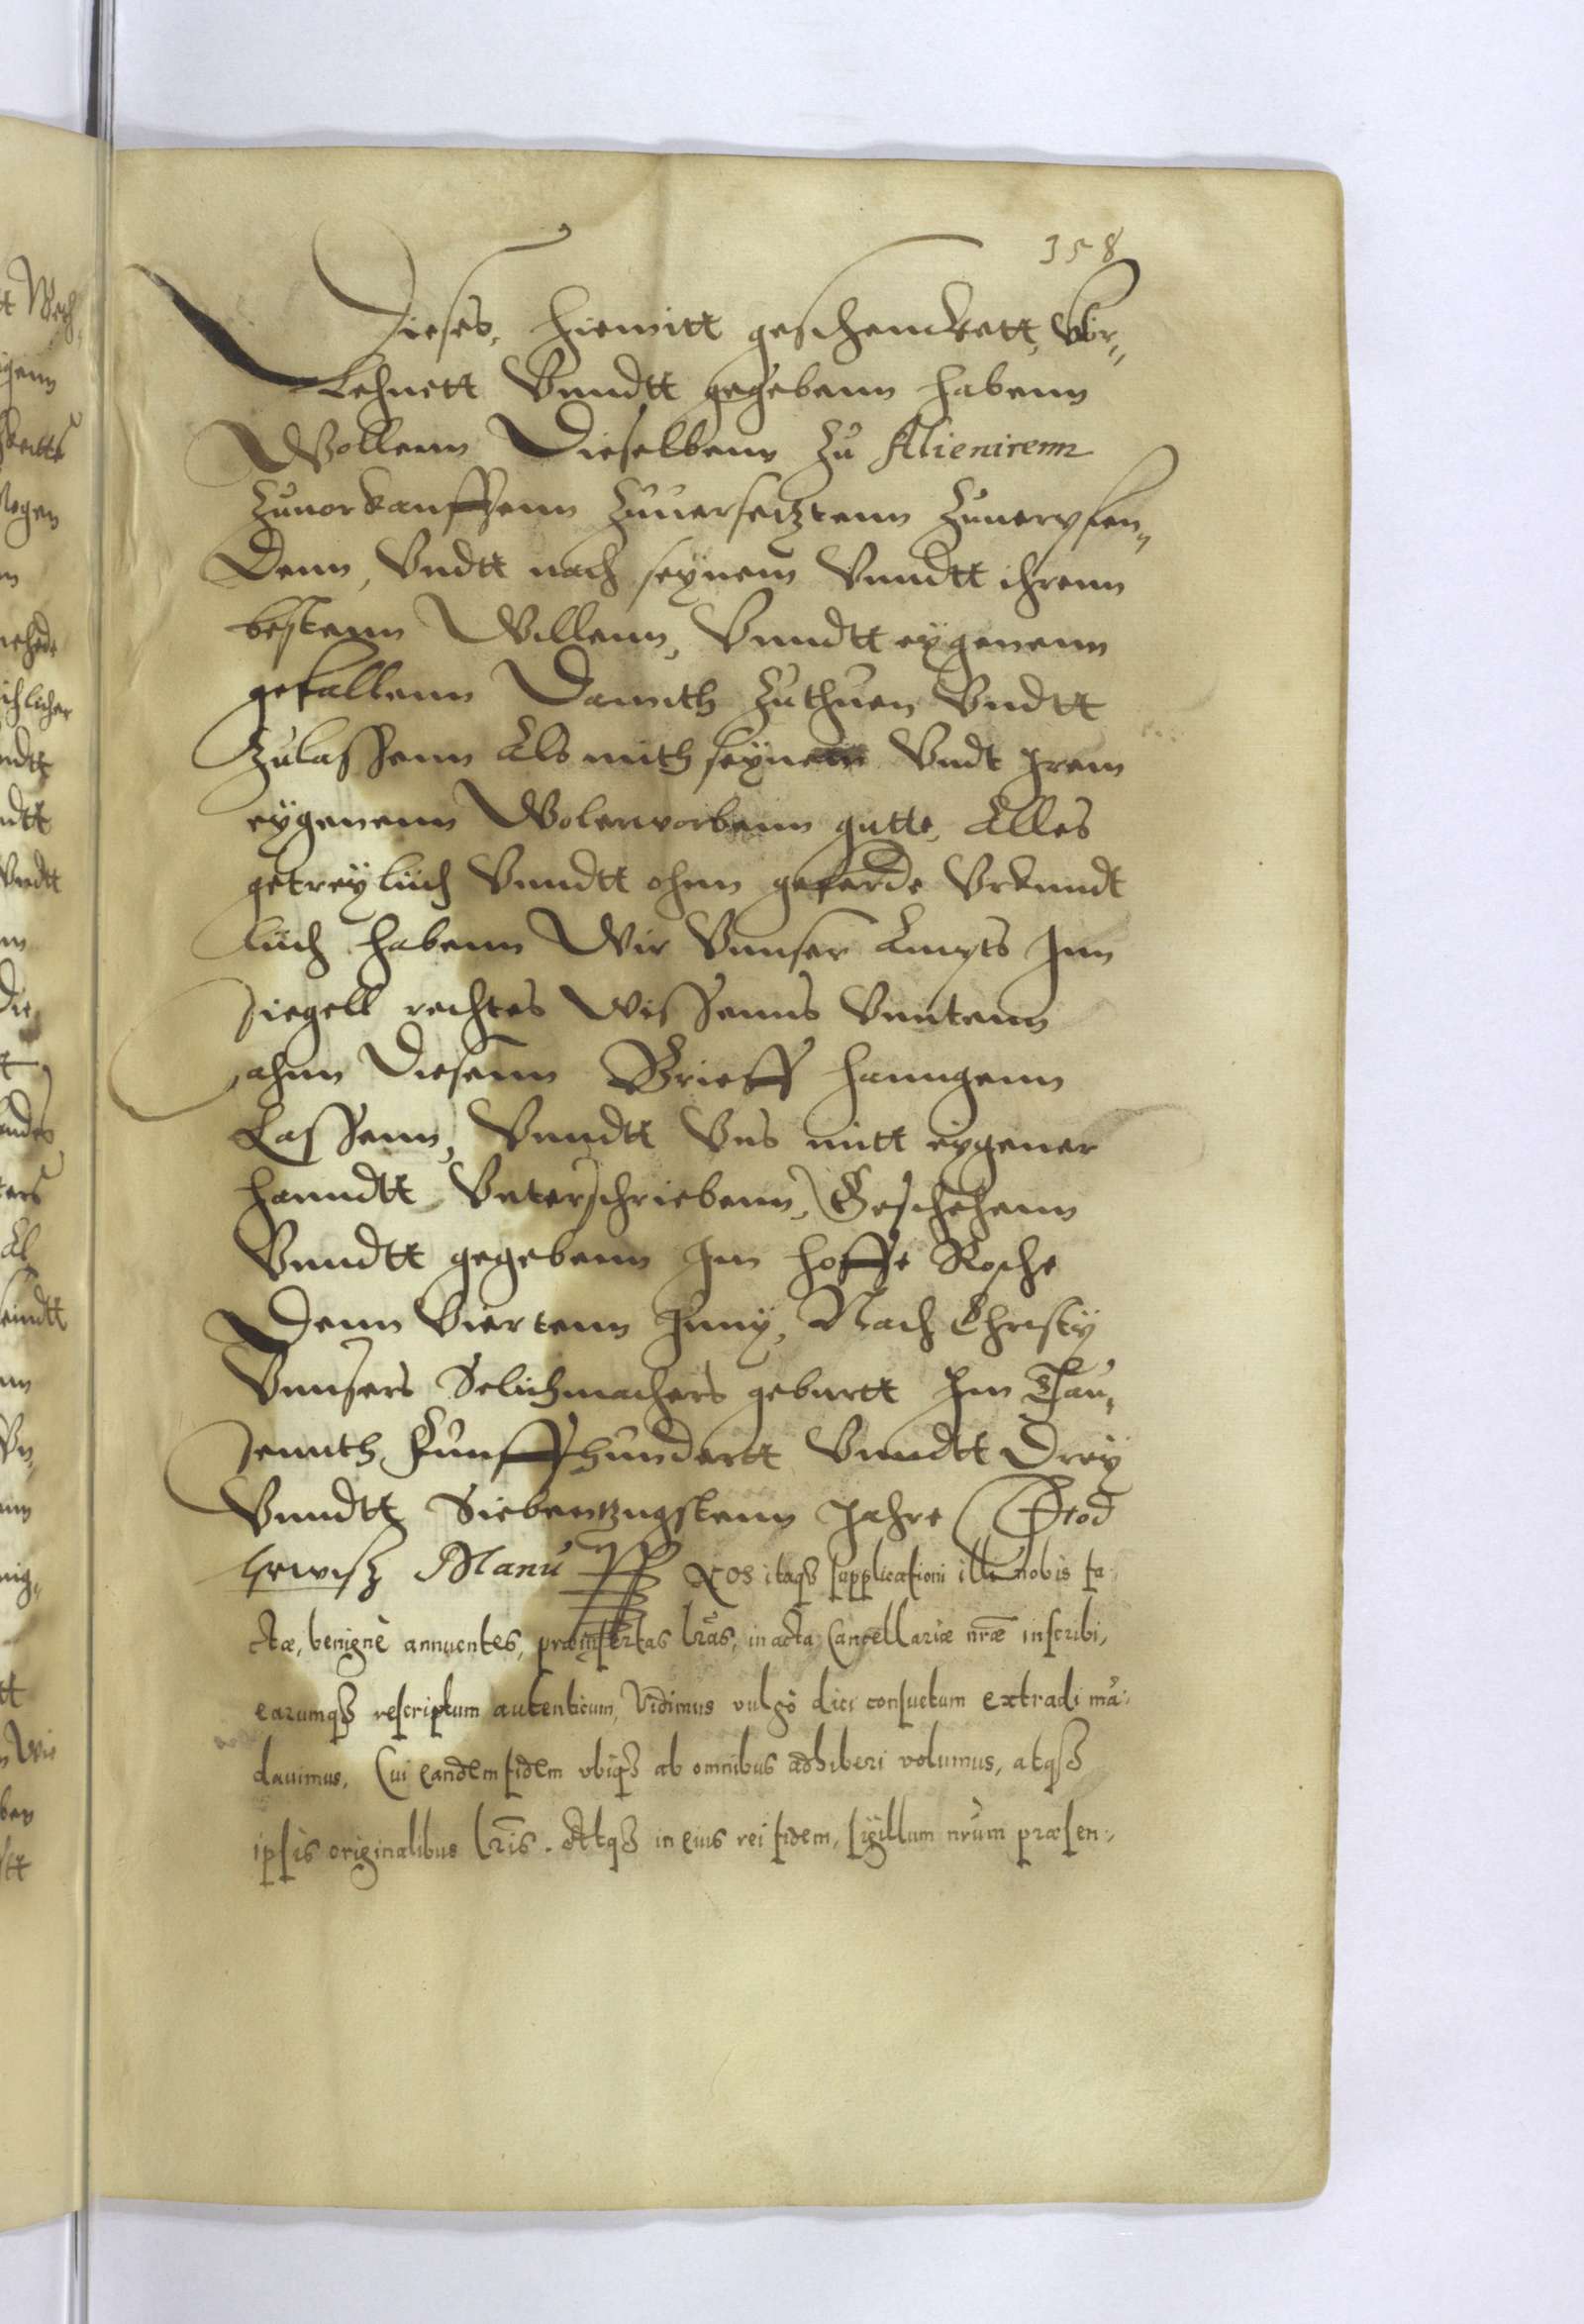 358
Dieses, hiemitt geschenckett, vor„
Lehnett Vnndtt gegebenn habenn
Wollenn Dieselbenn zu Alienirenn
zuuorkauffenn zuuersetztenn zuuerpfen„
Denn, Vndtt nach seynem Vnndtt ihrenn
bestenn Willenn, Vnndtt eygenenn
gefallenn Damith zuthuen Vndtt
zulassenn Als mith seynem Vndt jrem
eygenenn Wolerworbenn gutte, Alles
getreylich Vnndtt ohnn geferde Vrkundt
lich habenn Wir Vnnser Ampts Inn
siegell rechtes wissenns Vnntenn
ahnn Diesenn Brieff hanngenn
Lassenn, Vnndtt Vns mitt eygener
hanndtt Vnterschriebenn, Geschehenn
Vnndtt gegebenn Im hoffe Rosche
Denn Viertenn Juny, Nach Christy
Vnnsers Selichmachers geburtt Im Tau„
sennth Funffhundertt Vnndtt Drey
Vnndtt Siebentzugstenn Jahre
Manu Nos itaqz supplicationi illi nobis fa„
ctæ, benignè annuentes, præinsertas lras, in acta Cancellariæ nræ inscribi,
earumqz rescriptum autenticum, Vidimus vulgò dici consuetum extradi mã„
dauimus, Cui eandem fidem vbiqz ab omnibus adhiberi volumus, atqz
ipsis originalibus lris. Atqz in eius rei fidem, sigillum nrum præsen„